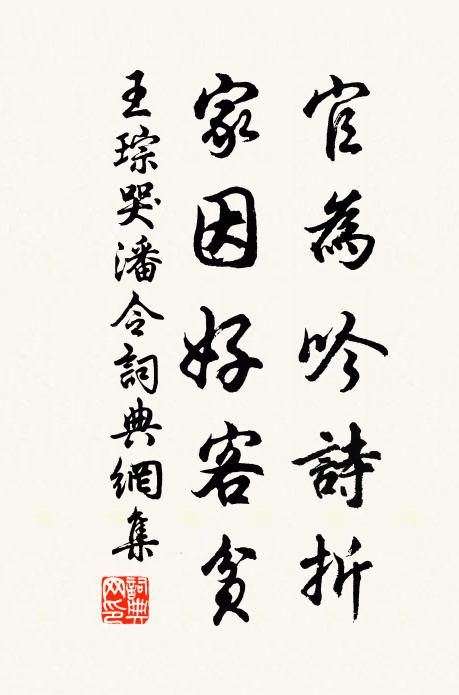 官為吟詩折
家因好客貧
王琮哭潘令詞典網集
詞典网印